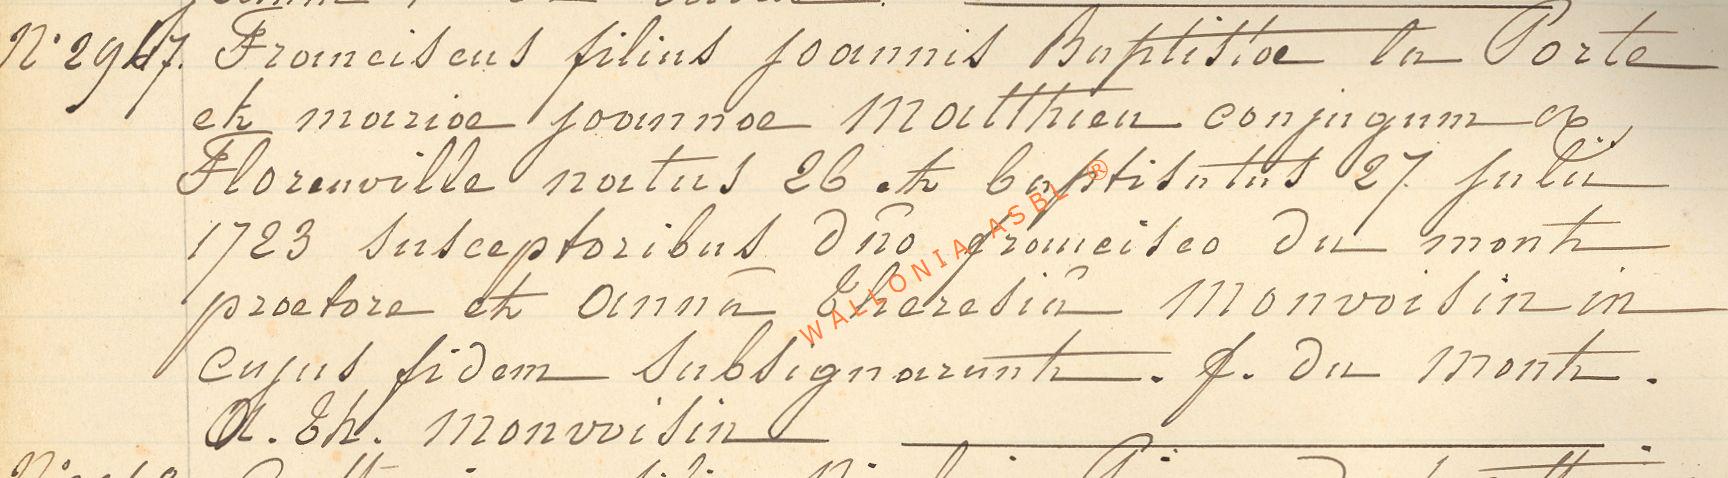 N° 2947. Franciscus filius joannis Baptistae la Porte
et mariae joannae Matthieu conjugum ex
Florenville natus 26 et baptisatus 27 julii
1723 susceptoribus dño francisco du mont
praetore et annâ theresiâ Monvoisin in
cujus fidem subsignarunt. f. du Mont.
A. Th. Monvoisin
WALLONIA ASBL ®